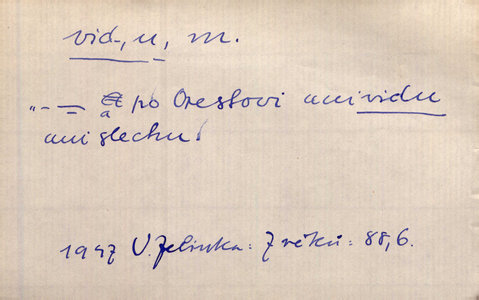 vid-, u, m.
„- – a po Orestovi ani vidu
ani slechu.
1947 V. Jelínka: Z věků: 88,6.